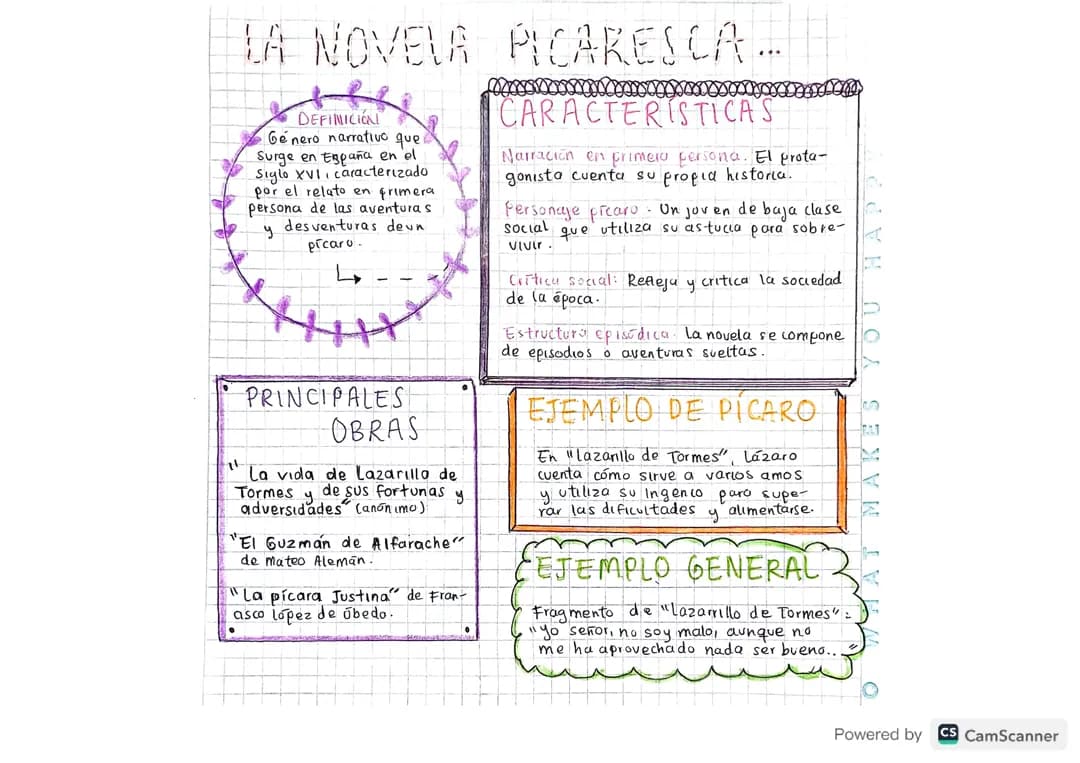 LA NOVELA PICARESCA...
DEFINICIÓN
Género narrativo que
surge en España en el
siglo XVI, caracterizado
por el relato en primera
persona de las aventuras
y desventuras deun
pícaro.
CARACTERÍSTICAS
Narración en primera persona. El prota-
gonista cuenta su propia historia.
Personaje pícaro. Un joven de baja clase
social que utiliza su astucia para sobre-
vivir.
Crítica social: Refleja y critica la sociedad
de la época.
Estructura episódica. La novela se compone
de episodios o aventuras sueltas.
PRINCIPALES
OBRAS
"La vida de Lazarillo de
Tormes y de sus fortunas y
adversidades" (anónimo)
"El Guzmán de Alfarache"
de Mateo Alemán.
"La pícara Justina" de Fran-
asco López de Úbedo.
EJEMPLO DE PÍCARO
En "Lazarillo de Tormes", Lázaro
cuenta cómo sirve a varios amos
y utiliza su ingenio para supe-
rar las dificultades y alimentarse.
EJEMPLO GENERAL
Fragmento de "Lazarrillo de Tormes":
"yo señor, no soy malo, aunque no
me ha aprovechado nada ser bueno..."
O WHAT MAKES YOU HAPP
Powered by CS CamScanner